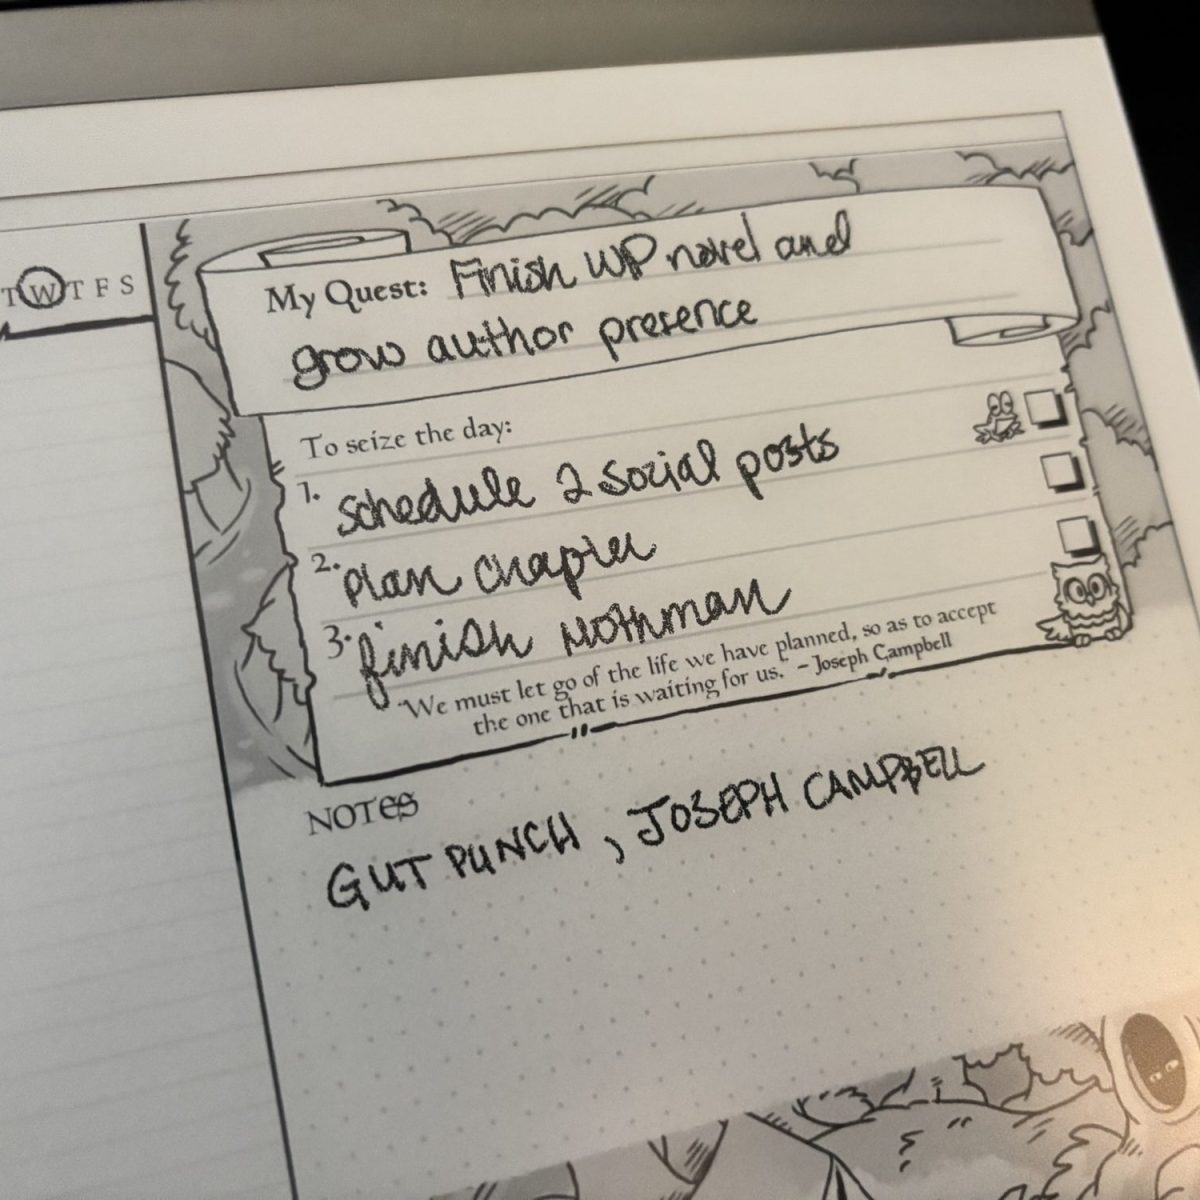 T W T F S
My Quest: Finish WP novel and
grow author presence
To seize the day:
1. schedule 2 social posts
2. plan chapter
3. finish Mothman
"We must let go of the life we have planned, so as to accept
the one that is waiting for us." – Joseph Campbell
NOTES
GUT PUNCH, JOSEPH CAMPBELL